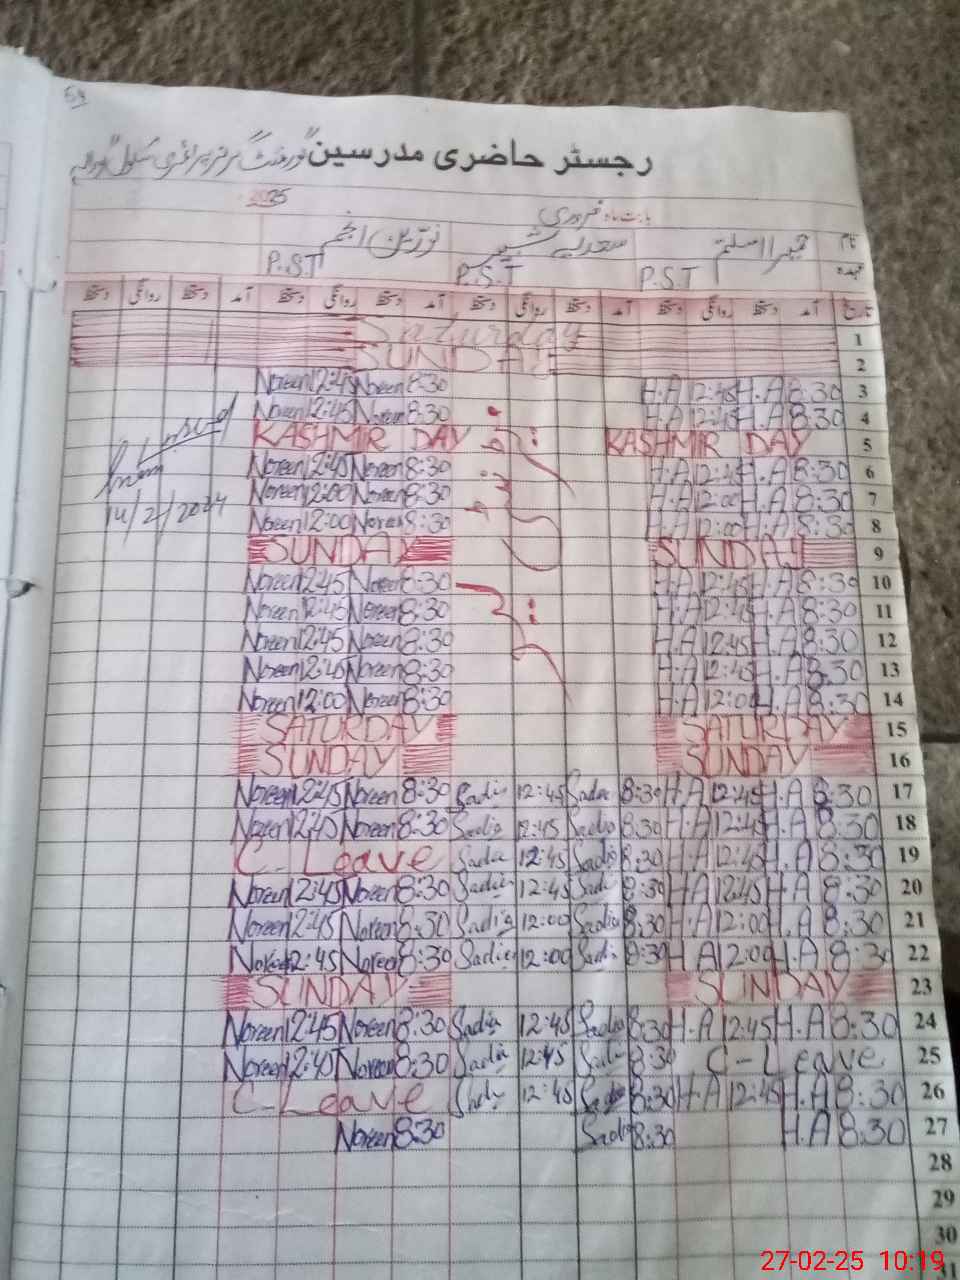 رجسٹر حاضری مدرسین گورنمنٹ گرلز پرائمری سکول
بابت ماہ فروری 2025
نام حمیرا اسلم سعدیہ شبیر نورین انجم
عہدہ P.S.T P.S.T P.S.T
تاریخ آمد دستخط روانگی دستخط آمد دستخط روانگی دستخط آمد دستخط روانگی دستخط آمد دستخط روانگی دستخط
Saturday 1
SUNDAY 2
Noreen 12:45 Noreen 8:30 H.A 12:45 H.A 8:30 3
Noreen 12:45 Noreen 8:30 H.A 12:45 H.A 8:30 4
KASHMIR DAY KASHMIR DAY 5
Noreen 12:45 Noreen 8:30 H.A 12:45 H.A 8:30 6
Noreen 12:00 Noreen 8:30 H.A 12:00 H.A 8:30 7
14/2/2024 Noreen 12:00 Noreen 8:30 H.A 12:00 H.A 8:30 8
SUNDAY SUNDAY 9
Noreen 12:45 Noreen 8:30 H.A 12:45 H.A 8:30 10
Noreen 12:45 Noreen 8:30 H.A 12:45 H.A 8:30 11
Noreen 12:45 Noreen 8:30 H.A 12:45 H.A 8:30 12
Noreen 12:45 Noreen 8:30 H.A 12:45 H.A 8:30 13
Noreen 12:00 Noreen 8:30 H.A 12:00 H.A 8:30 14
SATURDAY SATURDAY 15
SUNDAY SUNDAY 16
Noreen 12:45 Noreen 8:30 Sadia 12:45 Sadia 8:30 H.A 12:45 H.A 8:30 17
Noreen 12:45 Noreen 8:30 Sadia 12:45 Sadia 8:30 H.A 12:45 H.A 8:30 18
C-Leave Sadia 12:45 Sadia 8:30 H.A 12:45 H.A 8:30 19
Noreen 12:45 Noreen 8:30 Sadia 12:45 Sadia 8:30 H.A 12:45 H.A 8:30 20
Noreen 12:45 Noreen 8:30 Sadia 12:00 Sadia 8:30 H.A 12:00 H.A 8:30 21
Noreen 12:45 Noreen 8:30 Sadia 12:00 Sadia 8:30 H.A 12:00 H.A 8:30 22
SUNDAY SUNDAY 23
Noreen 12:45 Noreen 8:30 Sadia 12:45 Sadia 8:30 H.A 12:45 H.A 8:30 24
Noreen 12:45 Noreen 8:30 Sadia 12:45 Sadia 8:30 C-Leave 25
C-Leave 12:45 Sadia 8:30 H.A 12:45 H.A 8:30 26
Noreen 8:30 Sadia 8:30 H.A 8:30 27
28
29
30
31
27-02-25 10:19